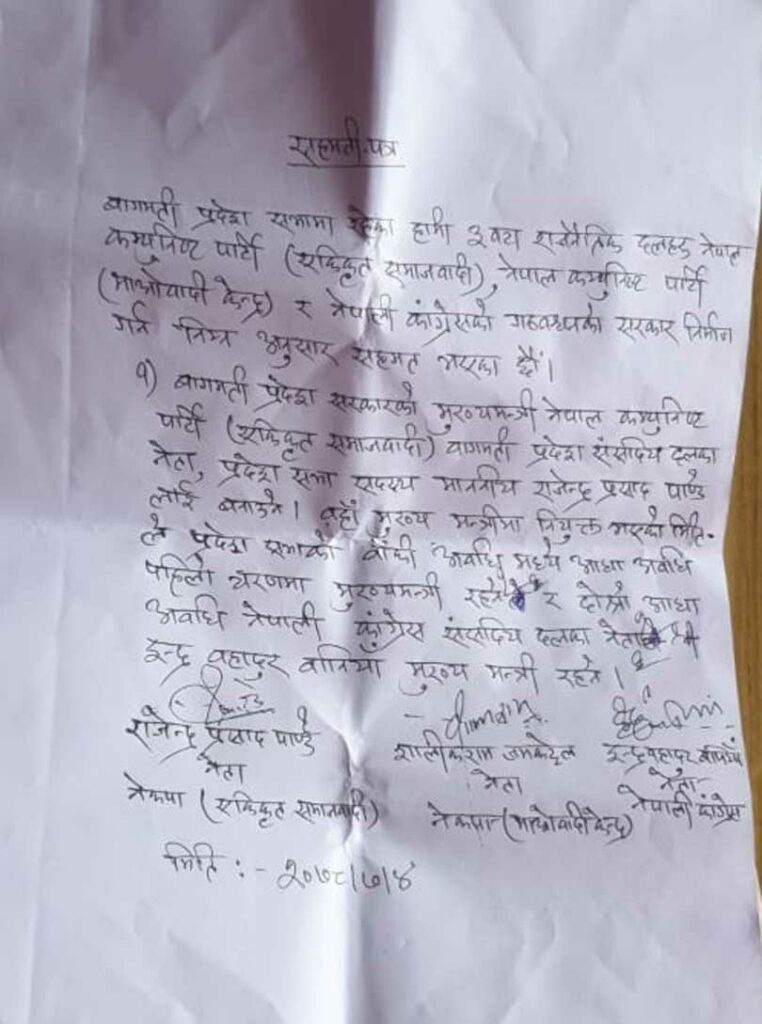 सहमती-पत्र
बागमती प्रदेश सभामा रहेका हामी ३ वटा राजनैतिक दलहरु नेपाल
कम्युनिष्ट पार्टी (एकिकृत समाजवादी), नेपाल कम्युनिष्ट पार्टी
(माओवादी केन्द्र) र नेपाली कांग्रेसको गठबन्धनको सरकार निर्माण
गर्न निम्न अनुसार सहमत भएका छौं।
१) बागमती प्रदेश सरकारको मुख्यमन्त्री नेपाल कम्युनिष्ट
पार्टी (एकिकृत समाजवादी) बागमती प्रदेश संसदिय दलका
नेता, प्रदेश सभा सदस्य माननीय राजेन्द्र प्रसाद पाण्डे
लाई बनाउने। वहाँ मुख्य मन्त्रीमा नियुक्त भएको मिति-
ले प्रदेश सभाको बाँकी अवधि मध्ये आधा अवधि
पहिलो चरणमा मुख्यमन्त्री रहने र दोश्रो आधा
अवधि नेपाली कांग्रेस संसदिय दलका नेता श्री
इन्द्र बहादुर बानियाँ मुख्य मन्त्री रहने।
राजेन्द्र प्रसाद पाण्डे शालिकराम जमकट्टेल इन्द्र बहादुर बानियाँ
नेता नेता नेता
नेकपा (एकिकृत समाजवादी) नेकपा (माओवादी केन्द्र) नेपाली कांग्रेस
मिति :- २०७८/७/४